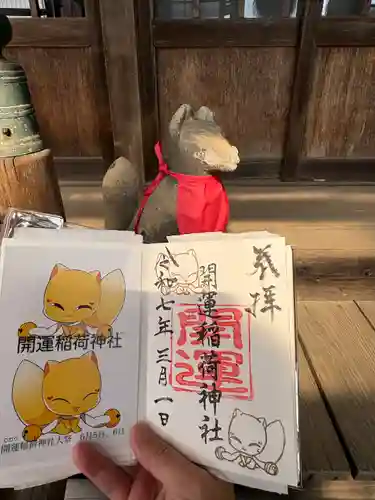 開運稲荷神社
開運稲荷神社
大祭 6月5日、6日
奉拝
開運稲荷神社
開運
令和七年三月一日